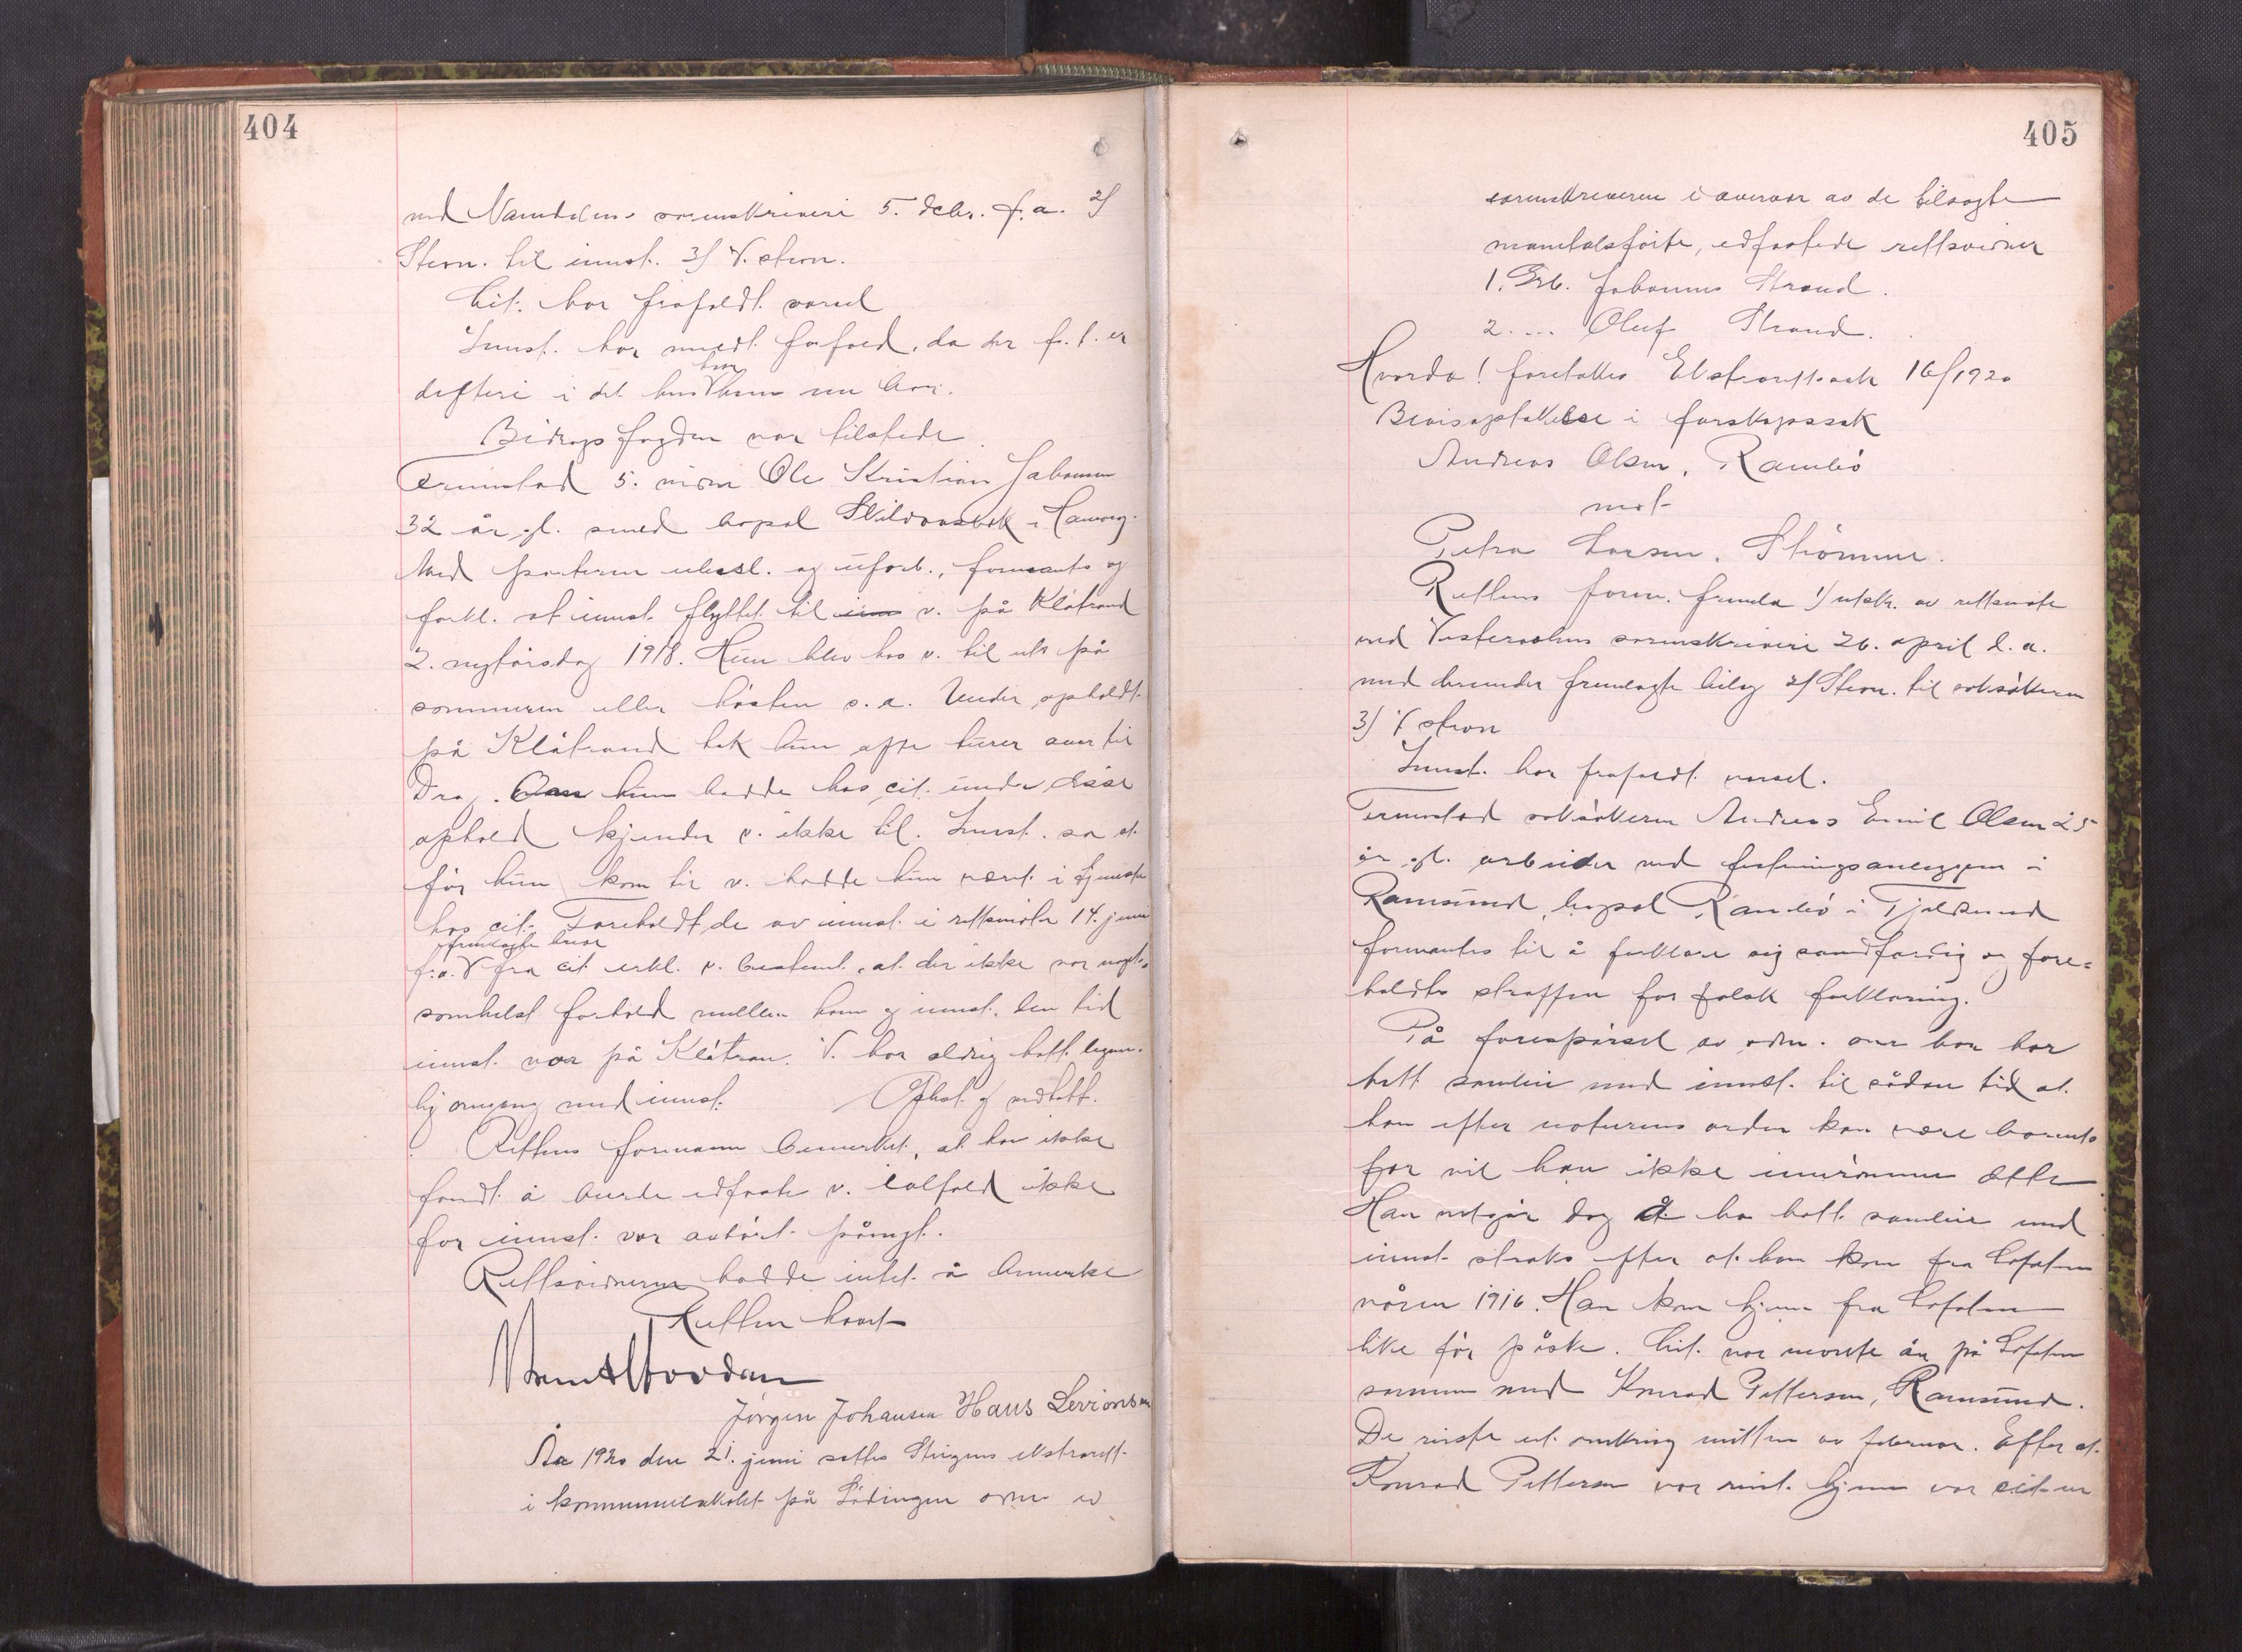 404
ved Namdalens sorenskriveri 5. debr. f.a. 2/
Stevn. til innst. 3/ V. stevn.
Cit. har frafaldt varsel
Innst. har meldt forfald, da der f. t. er
difteri i det hus hvor hun nu bor.
Bidragsfogden var tilstede.
Fremstod 5. vidne Ole Kristian Johansen
32 år gl. smed bopæl i Hamarøy.
Med parterne ubesl. og uforb., formantes og
forkl. at innst. flyttet til v. på Klåtrand
2. nyttårsdag 1918. Hun blev hos v. til ut på
sommeren eller høsten s.a. Under opholdt
på Klåtrand tok hun ofte turer over til
Drag. Om hun hadde hos cit. under disse
ophold kjender v. ikke til. Innst. sa at
før hun kom til v. hadde hun vært i tjeneste
hos cit. Foreholdt de av innst. i rettsmøte 14. juni
f.a. fremlagte breve fra cit. erkl. v. bestemt, at der ikke var noget
somhelst forhold mellem ham og innst. den tid
innst. var på Klåtran. V. har aldrig hatt legem-
lig omgang med innst. Oplest og vedtatt.
Rettens formann bemerket, at han ikke
fandt å burde edfæste v. ialfald ikke
før innst. var avhørt påny.
Rettsvidnerne hadde intet å bemerke
Retten hævet
Jørgen Johansen Hans Levionsen
År 1920 den 21. juni sattes Steigens ekstrarett
i kommunelokalet på Lødingen
405
sorenskriveren i overvær av de tilsagte
manntalsførte, edfæstede rettsvidner
1. Grb. Johannes Strand.
2. ... Oluf Strand.
Hvorda! foretokes Ekstrarettssak 16/1920
Bevisoptakelse i farskapssak
Andreas Olsen, Rambø
mot
Petra Larsen, Strømmen.
Rettens form. fremla 1/ utskr. av rettsmøte
ved Vesteraalens sorenskriveri 26. april d.a.
med derunder fremlagte bilag 2/ Stevn. til saksøkeren
3/ V stevn
Innst. har frafaldt varsel.
Fremstod saksøkeren Andreas Emil Olsen 25
år gl. arbeider ved festningsanleggen i
Ramsund, bopæl Rambø i Tjeldsund
formantes til å forklare sig sandfærdig og fore=
holdtes straffen for falsk forklaring.
På forespørsel av adm. om han har
hatt samleie med innst. til sådan tid at
han efter naturens orden kan være barnets
far vil han ikke innrømme dette
Han vetgår dog å ha hatt samleie med
innst. straks efter at han kom fra Lofoten
våren 1916. Han kom hjem fra Lofoten
like før påske. Cit. var første år på Lofoten
sammen med Konrad Pettersen, Ramsund.
De reiste ut omkring midten av februar. Efter at
Konrad Pettersen var reist hjem var cit. en